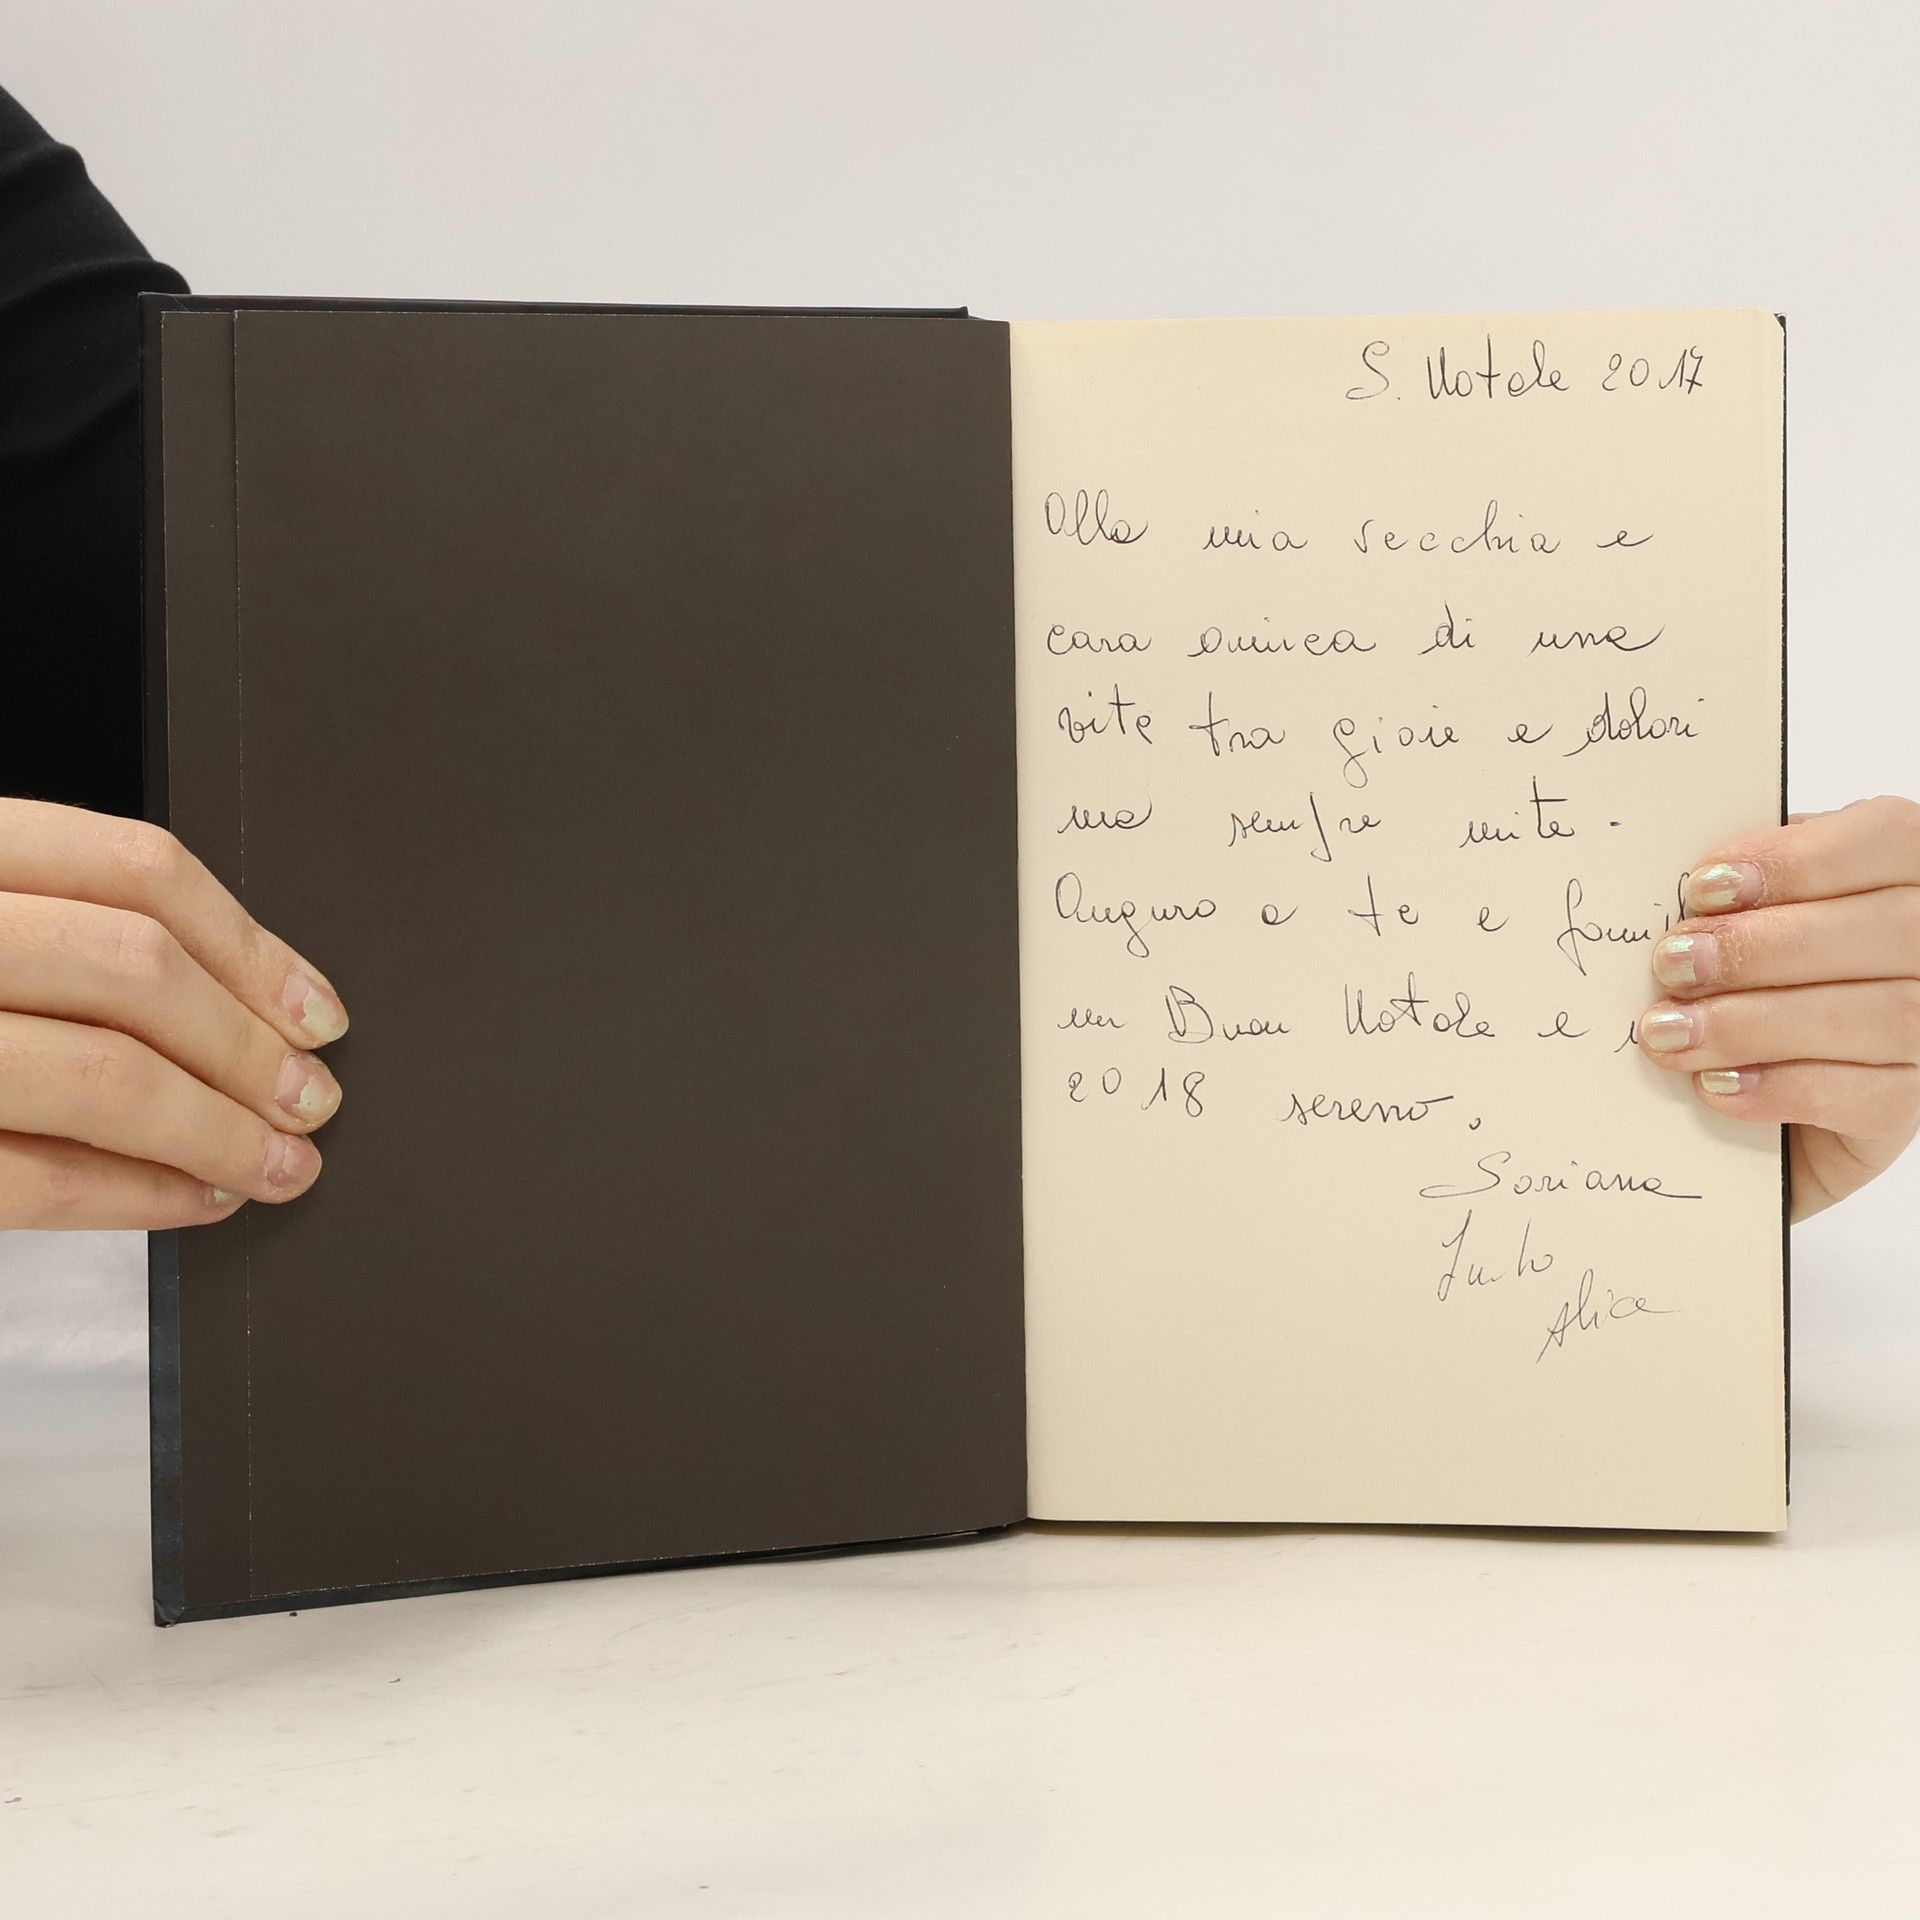 S. Natale 2017
Alla mia secchia e
cara amica di una
vita tra gioie e dolori
ma sempre unite.
Auguro a te e famil
un Buon Natale e
2018 sereno.
Soriana
Alice